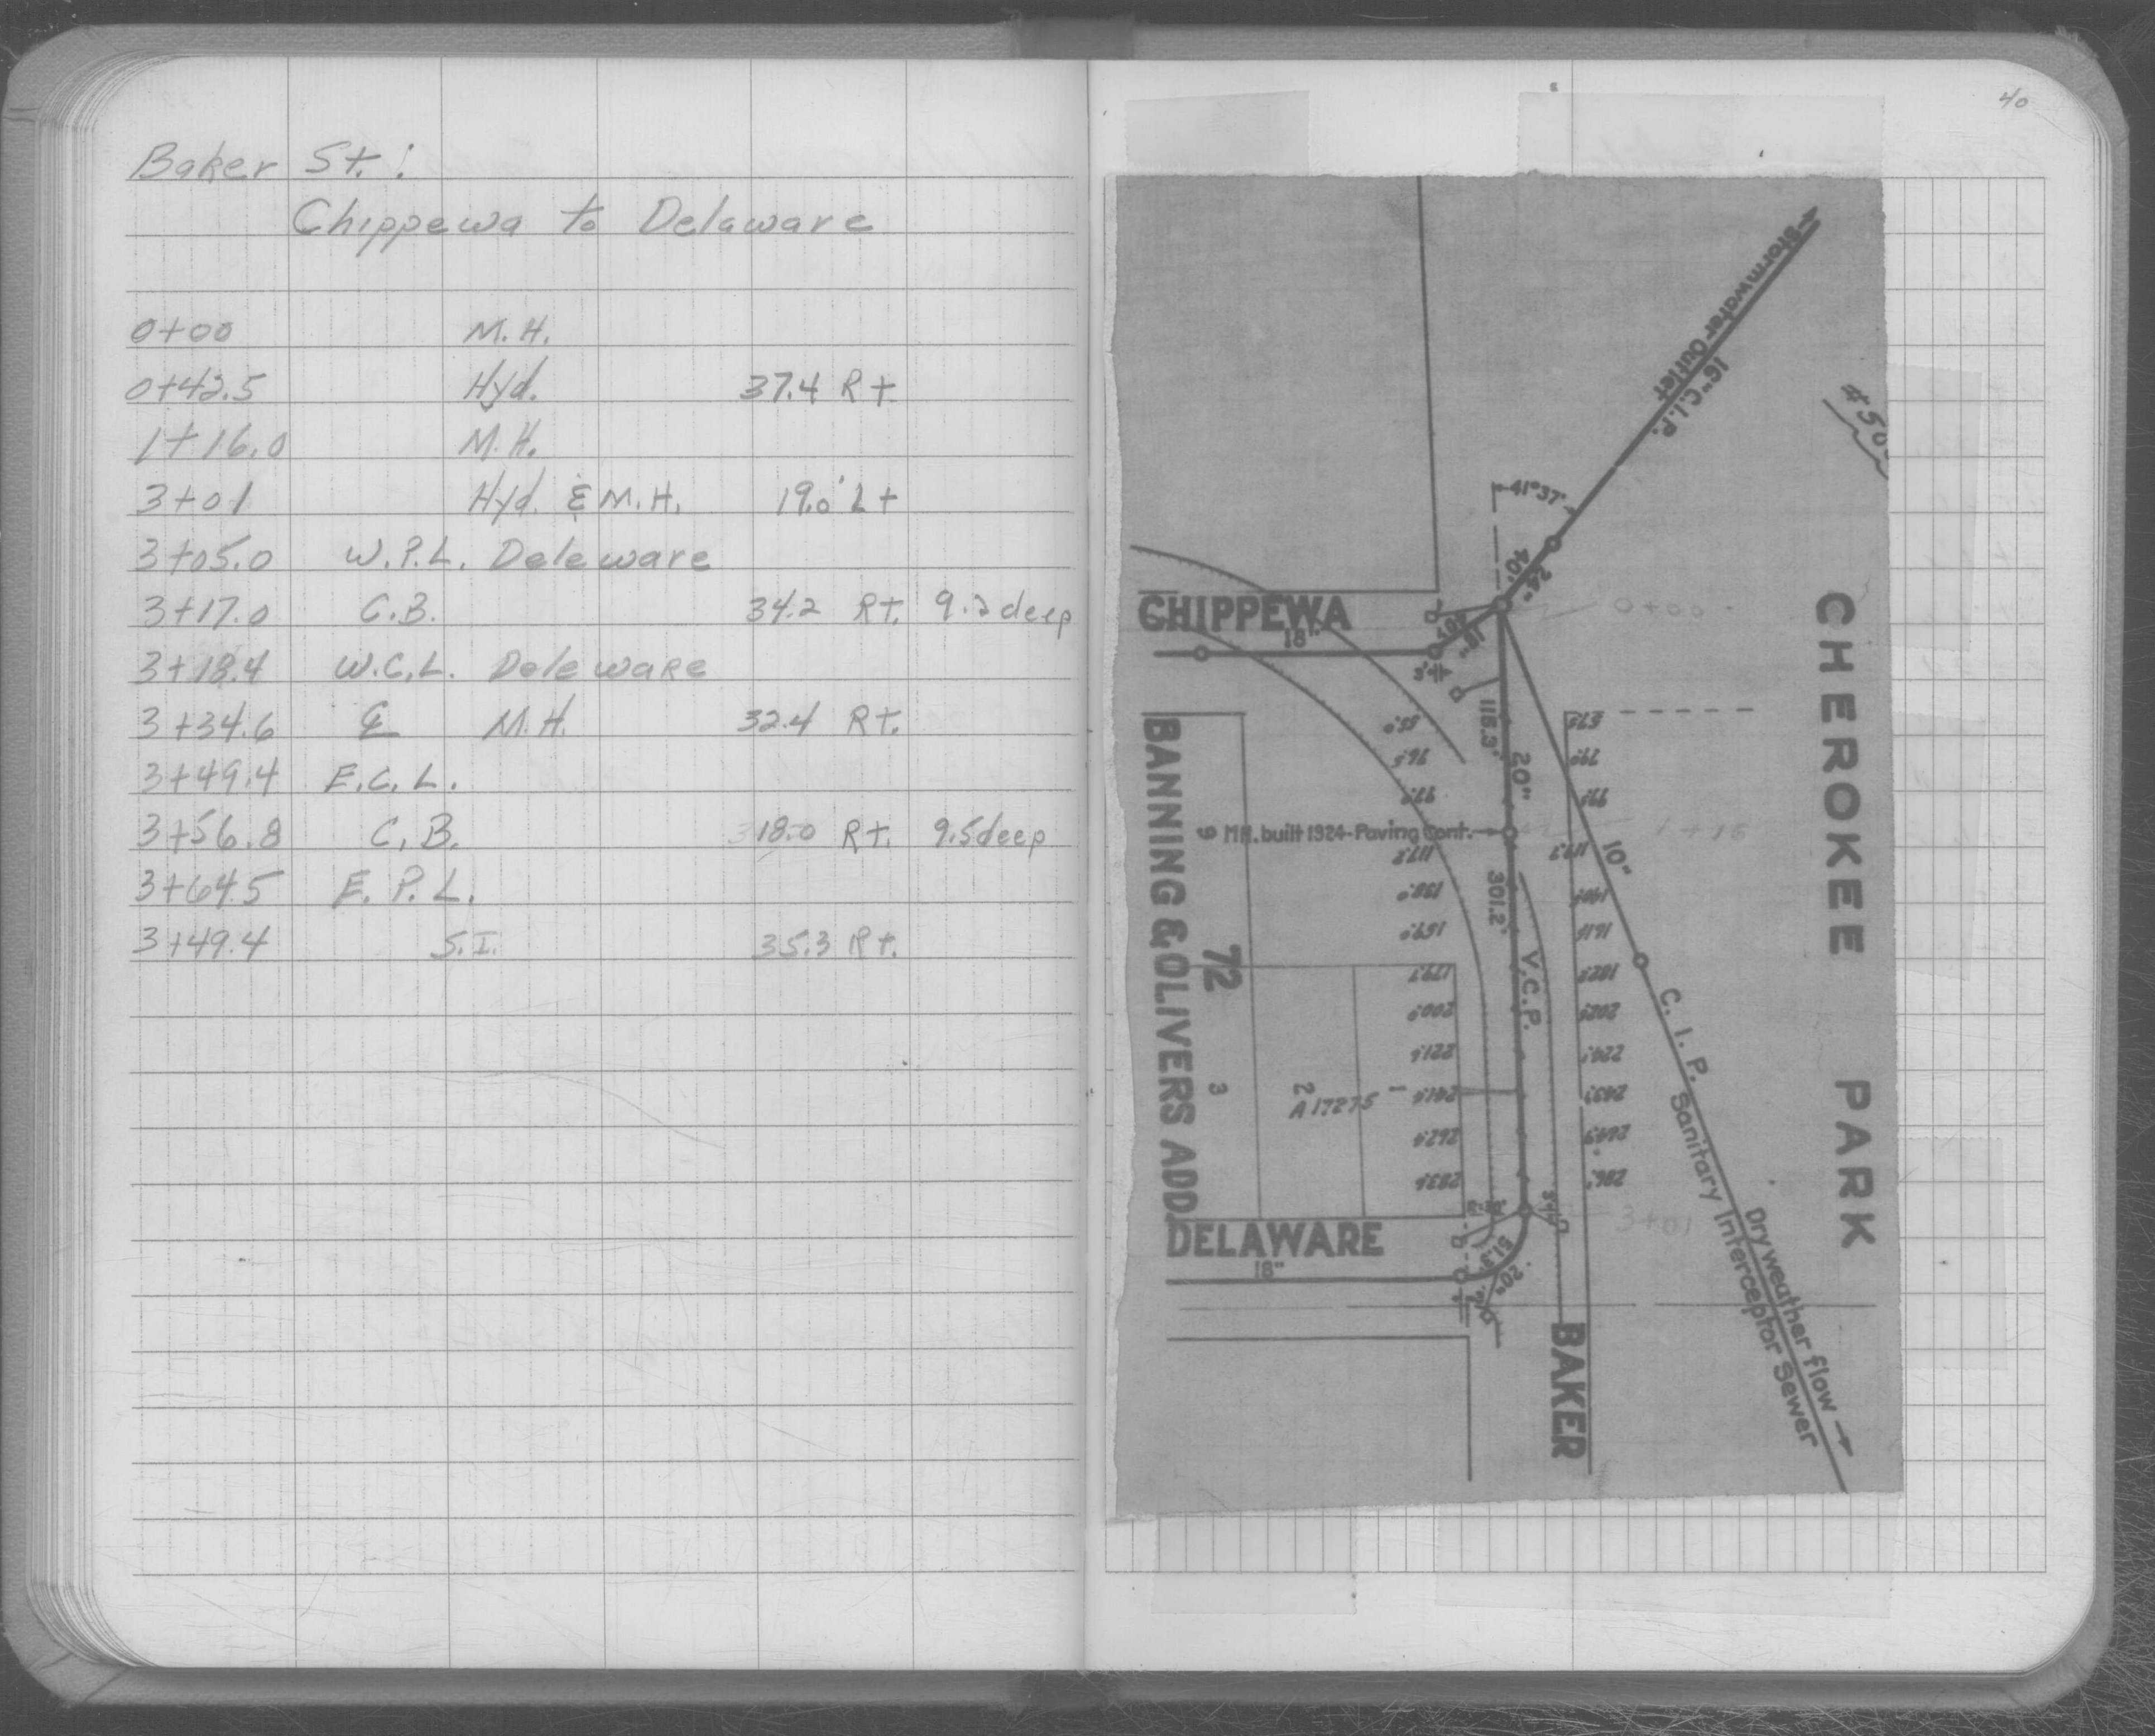 Baker St. :
Chippewa to Delaware
0+00 M.H.
0+42.5 Hyd. 37.4 Rt
1+16.0 M.H.
3+01 Hyd. & M.H. 19.0' Lt
3+05.0 W.P.L. Deleware
3+17.0 C.B. 34.2 Rt. 9.2 deep
3+18.4 W.C.L. Deleware
3+34.6 ℄ M.H. 32.4 Rt.
3+49.4 E.C.L.
3+56.8 C.B. 18.0 Rt. 9.5 deep
3+64.5 E.P.L.
3+49.4 S.I. 35.3 Rt.
40
Stormwater Outlet
16" C.I.P.
41°37'
24"
40'
0+00
CHIPPEWA
18"
18"
115.3'
20"
MH. built 1924-Paving Cont.
1+16
10"
301.2'
V.C.P.
BANNING & OLIVERS ADD.
72
3
2
1
A 17275
C.I.P. Sanitary Interceptor Sewer
Dryweather flow
CHEROKEE PARK
3+01
DELAWARE
18"
51.3'
20"
BAKER